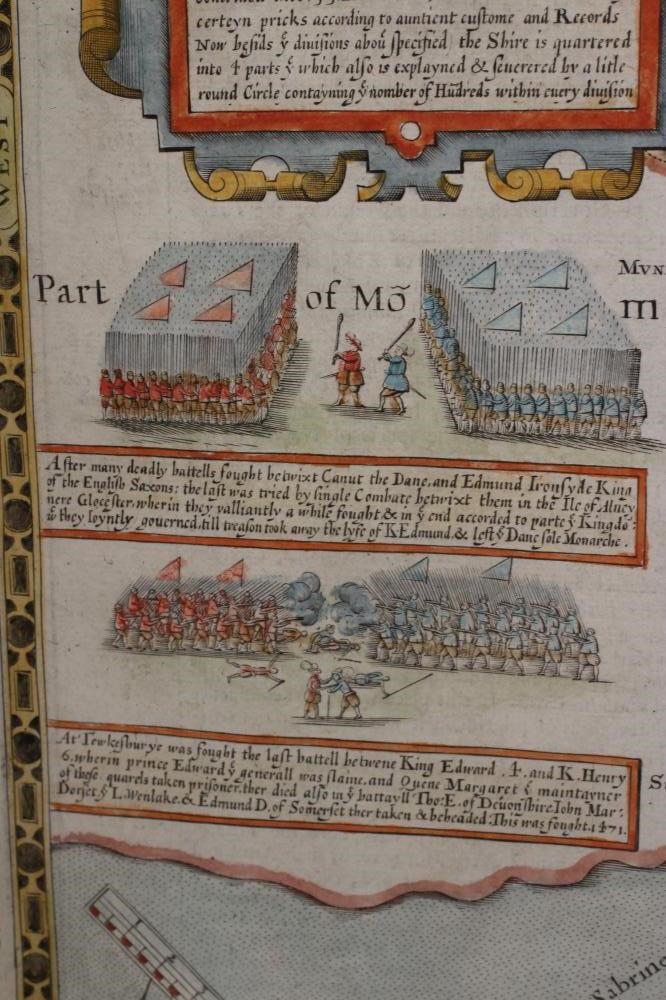 certeyn pricks according to auntient custome and Records
Now besids ẙ diuisions aboū specified the Shire is quartered
into 4 parts ẙ which also is explayned & seuerered by a litle
round Circle contayning ẙ nomber of Hūdreds within euery diuision
WEST
Part of Mō
MVN
m
After many deadly battells fought betwixt Canut the Dane, and Edmund Ironsyde King
of the English Saxons: the last was tried by single Combate betwixt them in the Ile of Alney
nere Glocester, wherin they valliantly a while fought & in ẙ end accorded to parte ẙ Kingdō:
ẘ they Ioyntly gouerned, till treason took away the lyfe of K Edmund, & left ẙ Dane sole Monarche.
At Tewkesburye was fought the last battell betwene King Edward .4. and K. Henry
6. wherin prince Edward ẙ generall was slaine, and Quene Margaret ẙ maintayner
of those quarels taken prisoner. ther died also in ẙ battayll Tho: E. of Deuonshire. Iohn Mar:
Dorset, ẙ L. Wenlake. & Edmund D. of Somerset ther taken & beheaded. This was fought. 1471.
Sabrine